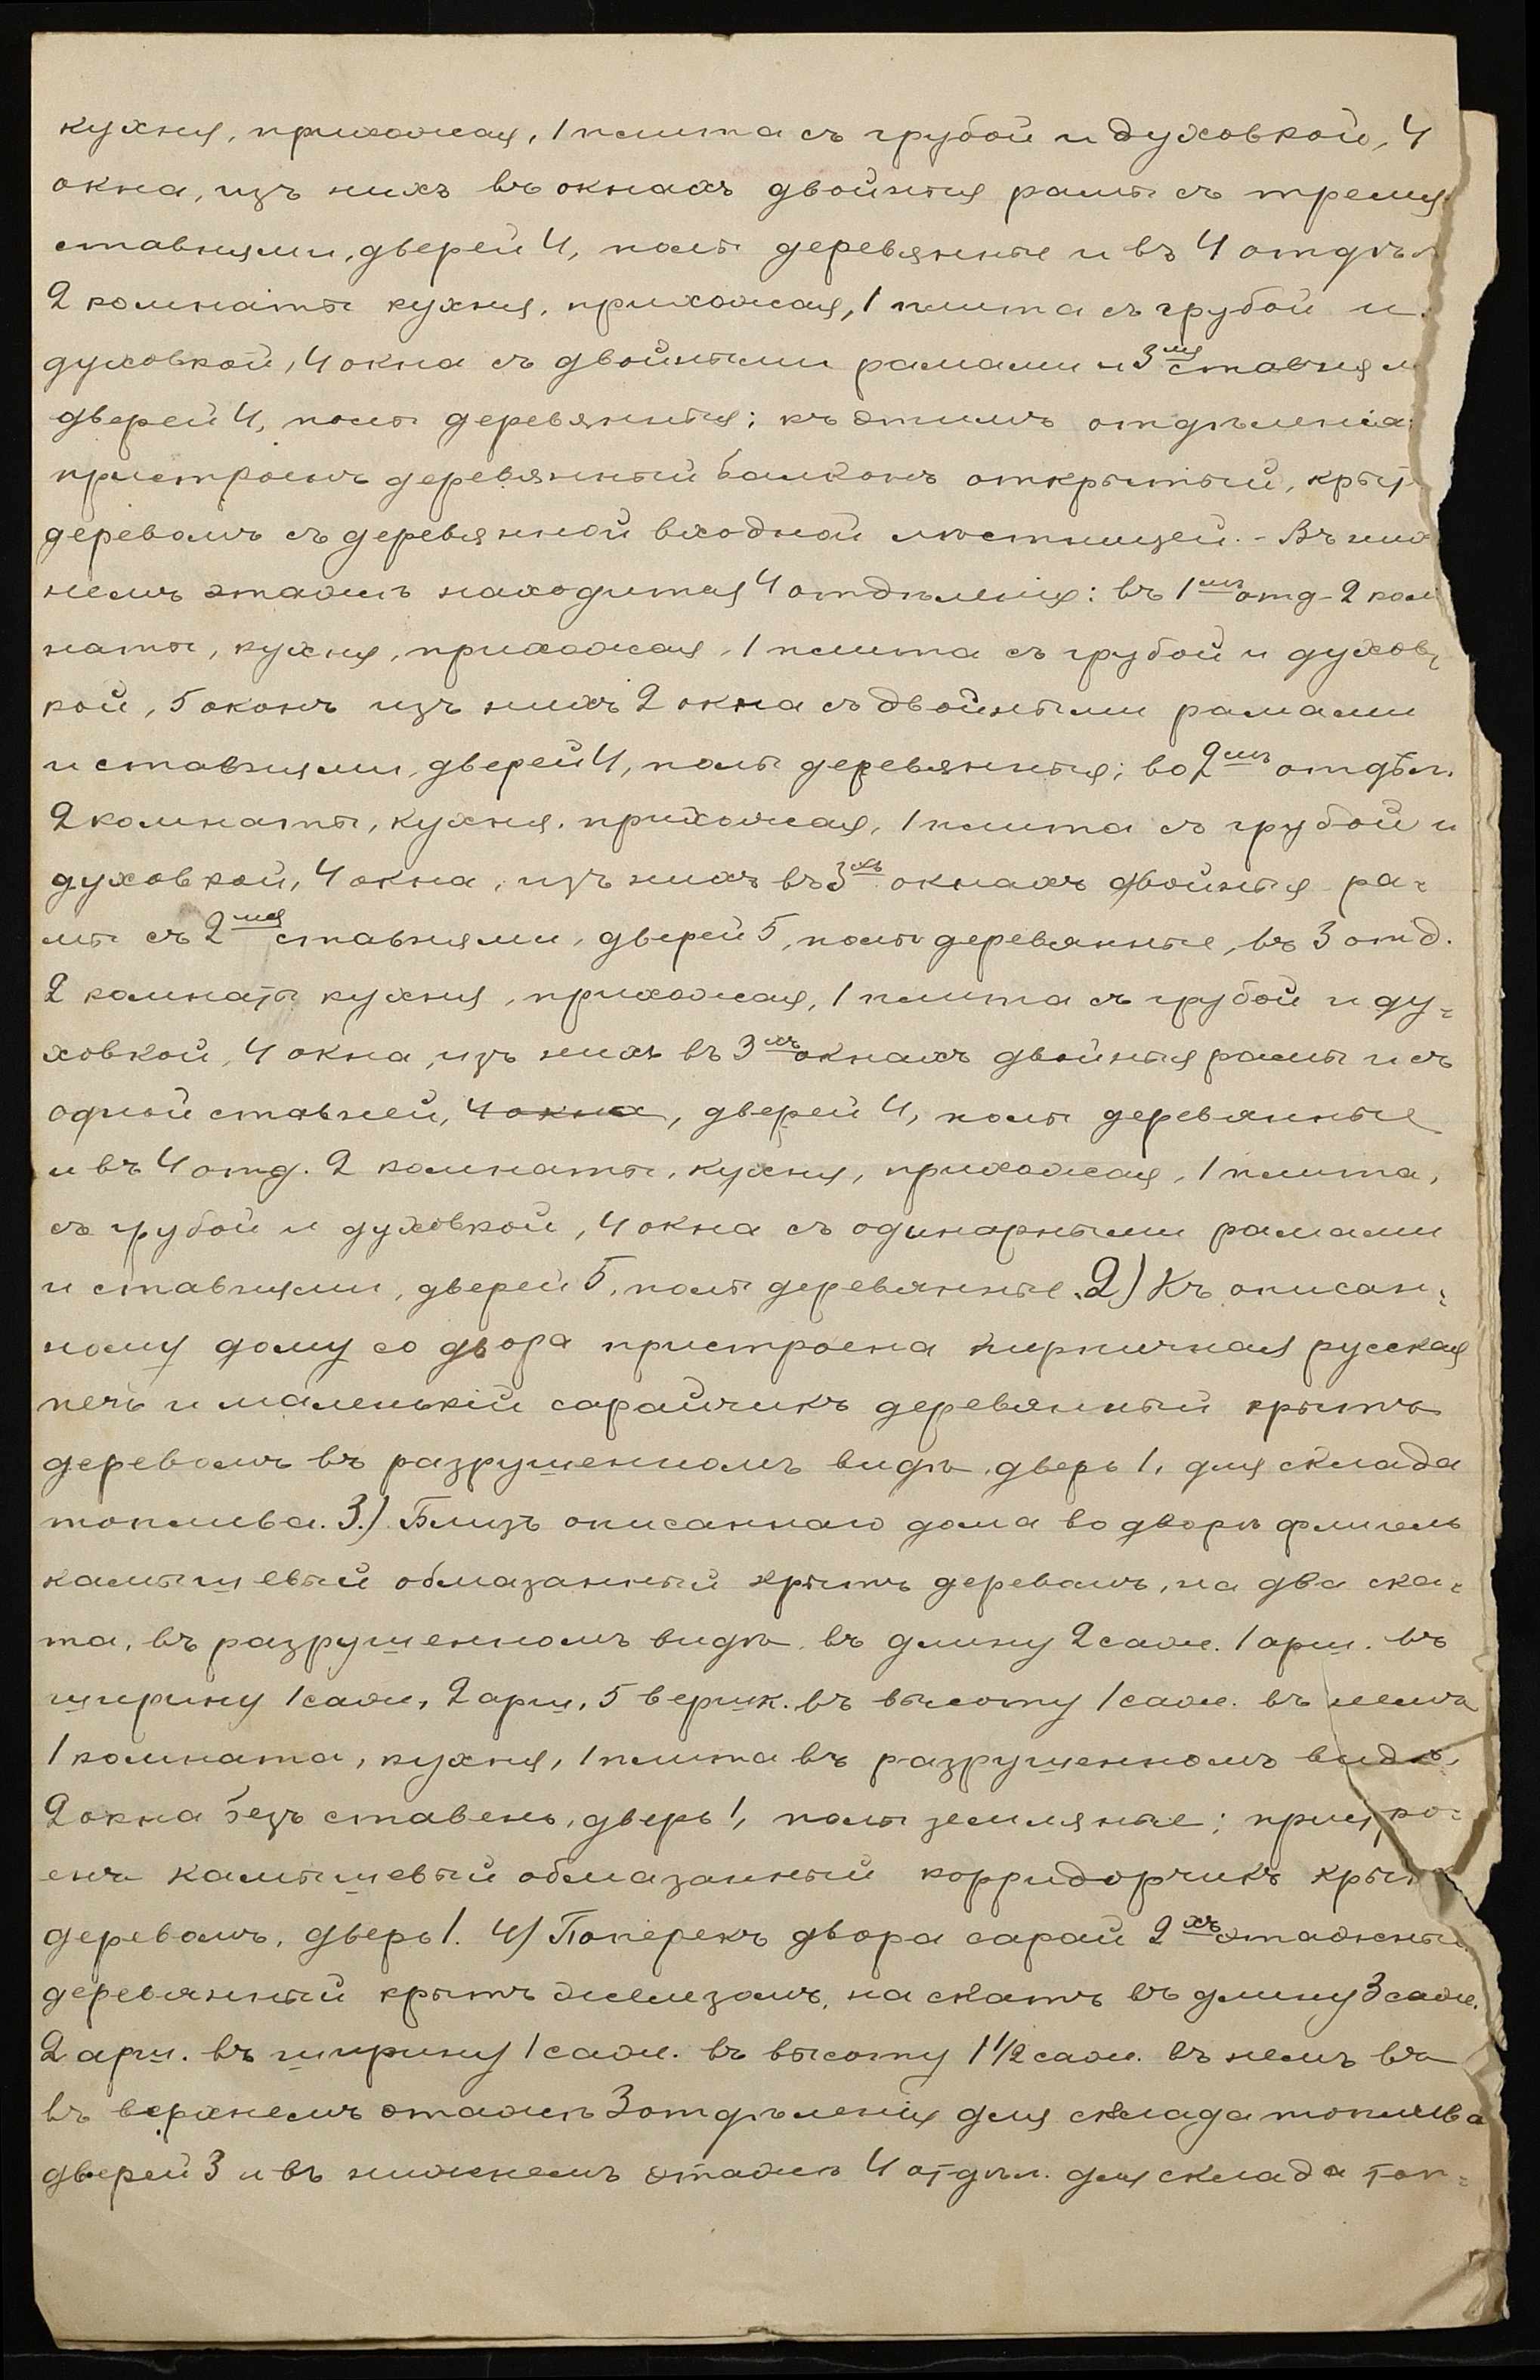 кухня, прихожая, 1 плита съ грубой и духовкой, 4
окна, изъ нихъ въ окнахъ двойныя рамы съ тремя
ставнями, дверей 4, полы деревянные и въ 4 отдѣл
2 комнаты кухня, прихожая, 1 плита съ грубой и
духовкой, 4 окна съ двойными рамами и 3мя ставням
дверей 4, полы деревянныя; къ этимъ отдѣленія
пристроенъ деревянный балконъ открытый, крыт
деревомъ съ деревянной входной лѣстницей. - Въ ниж
немъ этажѣ находится 4 отдѣленія: въ 1мъ отд - 2 ком
наты, кухня, прихожая, 1 плита съ грубой и духов-
кой, 5 оконъ изъ нихъ 2 окна съ двойными рамами
и ставнями, дверей 4, полы деревянныя; во 2мъ отдѣл.
2 комнаты, кухня, прихожая, 1 плита съ грубой и
духовкой, 4 окна, изъ нихъ въ 3хъ окнахъ двойныя ра-
мы съ 2мя ставнями, дверей 5, полы деревянные, въ 3 отд.
2 комнаты кухня, прихожая, 1 плита съ грубой и ду-
ховкой, 4 окна, изъ нихъ въ 3хъ окнахъ двойныя рамы и съ
одной ставней, 4 окна, дверей 4, полы деревянные
и въ 4 отд. 2 комнаты, кухня, прихожая, 1 плита,
съ грубой и духовкой, 4 окна съ одинарными рамами
и ставнями, дверей 5, полы деревянные. 2) Къ описан-
ному дому со двора пристроена кирпичная русская
печь и маленькій сарайчикъ деревянный крытъ
деревомъ въ разрушенномъ видѣ, дверь 1, для склада
топлива. 3.) Близъ описаннаго дома во дворѣ флигель
камышевый обмазанный крытъ деревомъ, на два ска-
та, въ разрушенномъ видѣ, въ длину 2 саж. 1 арш. въ
ширину 1 саж, 2 арш, 5 вершк. въ высоту 1 саж. въ немъ
1 комната, кухня, 1 плита въ разрушенномъ видѣ,
2 окна безъ ставень, дверь 1, полы земляные; пристро-
енъ камышевый обмазанный корридорчикъ крыт
деревомъ, дверь 1. 4) Поперекъ двора сарай 2хъ этажный
деревянный крытъ желѣзомъ, на скатъ въ длину 3 саж.
2 арш. въ ширину 1 саж. въ высоту 1 1/2 саж. въ немъ въ
въ верхнемъ этажѣ 3 отдѣленія для склада топлива
дверей 3 и въ нижнемъ этажѣ 4 отдѣл. для склада топ-